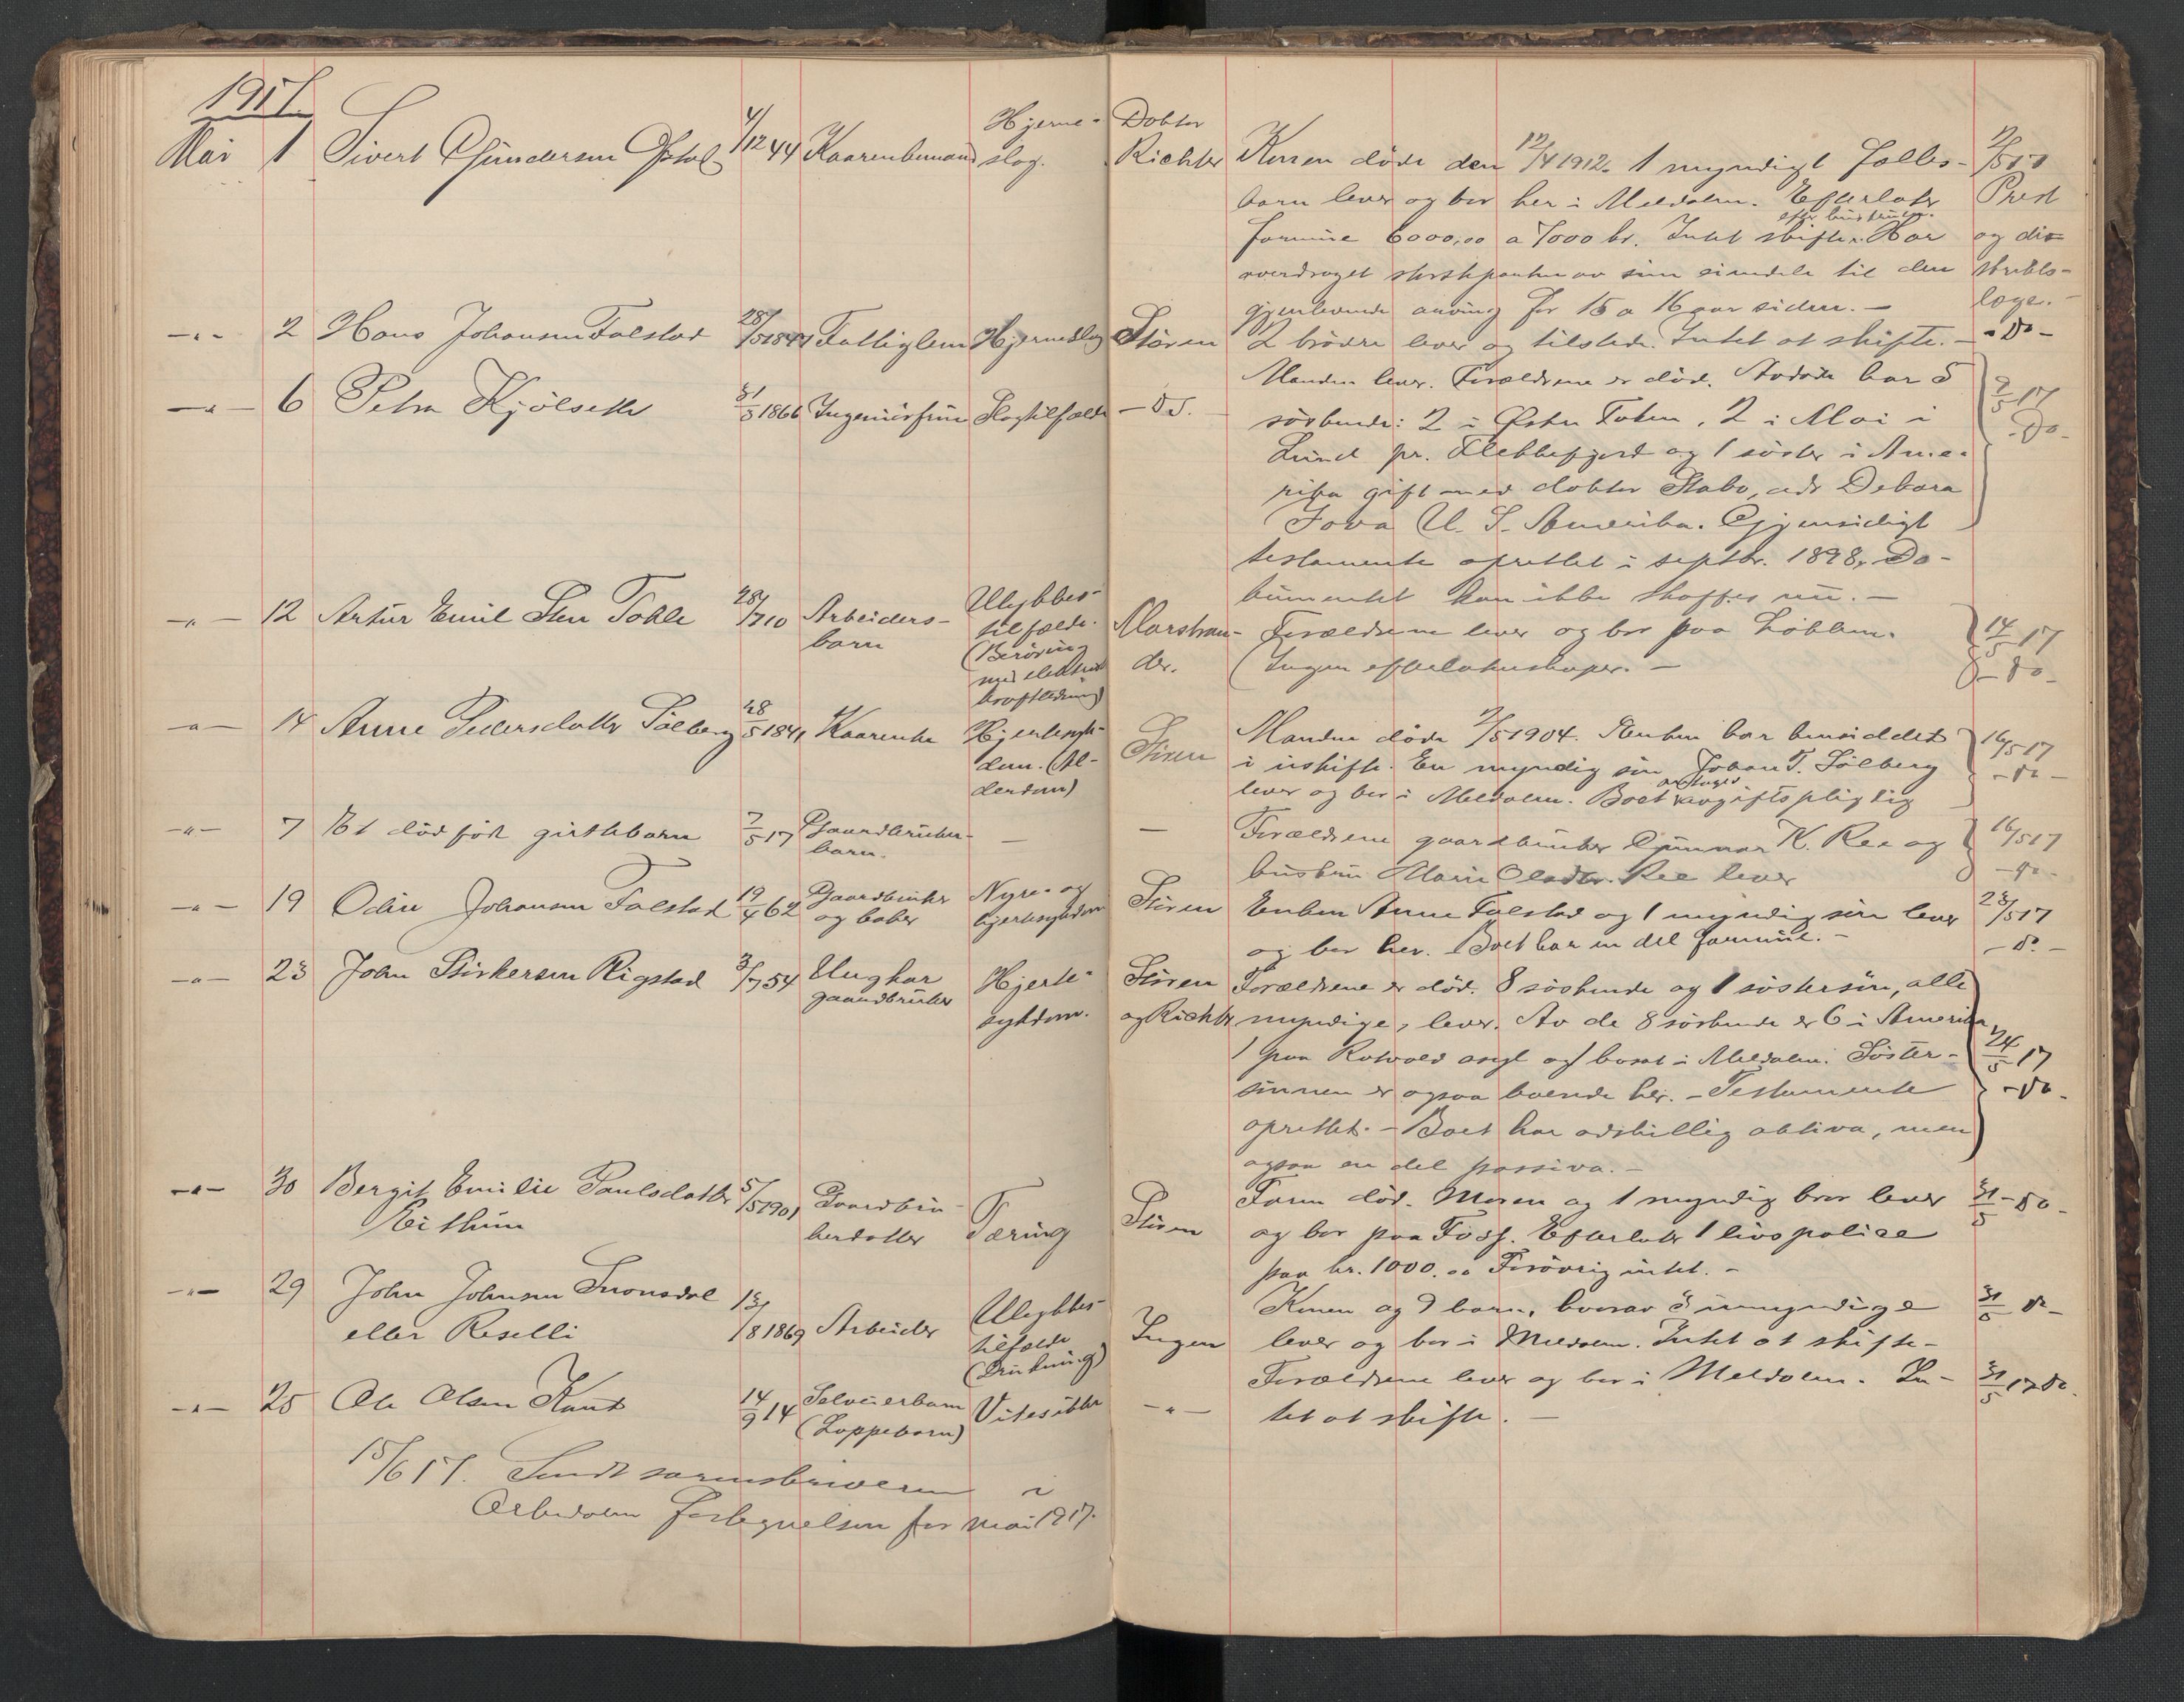 1917.
Mai 1 Sivert Gundersen 4/12 44 Kaarenkemand Hjerne-
slag.
Doktor
Richter
Konen døde den 12/4 1912. 1 myndigt fælles-
barn lever og bor her i Meldalen. Efterlater
efter hustruen.
formue 6000,00 a 7000 kr. Intet skifte. Har
overdraget største parten av sine eiendele til den
gjenlevende arving for 15 a 16 aar siden. —
2/5 17
Prest
og dis
trikts-
læge.
—"— 2 Hans Johansen Folstad 28/5 1844 Fattiglem Hjerneslag Støren
2 brødre lever og tilstede. Intet at skifte. — - Do -
—"— 6 Petra Kjølseth 31/3 1866 Ingeniørfrue Slagtilfælde — Do.
Manden lever. Forældrene er død. Avdøde har 5
søskende: 2 i Østre Toten, 2 i Moi i
Lund pr. Flekkefjord og 1 søster i Ame-
rika gift med doktor Stabo, adr Dekora
Iova U. S. Amerika. Gjensidigt
testamente oprettet i septbr. 1898. Do-
kumentet kan ikke skaffes nu. —
7/5 17
- Do -
—"— 12 Artur Emil Sten Tokle 28/7 10 Arbeiders-
barn
Ulykkes-
tilfælde.
(Berøring
med elektrisk
kraftledning)
Marstran-
der.
Forældrene lever og bor paa Løkken.
Ingen efterlatenskaper. —
14/5 17
- Do -
—"— 14 Anne Pedersdatter Solberg 28/5 1841 Kaarenke Hjertesyk-
dom. (Al-
derdom)
Støren
Manden døde 7/5 1904. Enken har hensiddet
i uskifte. En myndig søn Johan T. Solberg
antages
lever og bor i Meldalen. Boet avgiftspligtig
16/5 17
- Do -
—"— 7 Et dødfødt pikebarn 7/5 17 Gaardbruker-
barn. — —
Forældrene gaardbruker Gunnar K. Ree og
hustru Marie Olsdtr. Ree lever
16/5 17
- Do -
—"— 19 Odin Johansen Folstad 19/4 62 Gaardbruker
og baker
Nyre- og
hjertesykdom
Støren
Enken Anne Folstad og 1 myndig søn lever
og bor her. Boet har en del formue. —
23/5 17
- Do -
—"— 23 John Størkersen Rigstad 3/7 54 Ungkar
gaardbruker
Hjerte-
sykdom.
Støren
og Richter
Forældrene er død. 8 søskende og 1 søstersøn, alle
myndige, lever. Av de 8 søskende er 6 i Amerika,
1 paa Rotvold asyl og 1 bosat i Meldalen. Søster-
sønnen er ogsaa boende her. - Testamente
oprettet. - Boet har adskillig aktiva, men
ogsaa en del passiva. -
24/5 17
- Do -
—"— 30 Bergit Emilie Paulsdatter
Reithun
5/5 1901 Gaardbru-
kerdatter
Tæring
Støren
Faren død. Moren og 1 myndig bror lever
og bor paa Foss. Efterlater 1 livspolice
paa kr. 1000.00 Forøvrig intet. -
31/5 - Do -
—"— 29 John Johnsen Snonsdal
eller Reselli
13/8 1869 Arbeider Ulykkes-
tilfælde
(Drukning)
Ingen
Konen og 9 barn, hvorav 8 umyndige
lever og bor i Meldalen. Intet at skifte -
31/5 Do -
—"— 25 Ole Olsen Kant 14/9 14 Selveierbarn
(Loppebarn)
Vites ikke —"—
Forældrene lever og bor i Meldalen. In-
tet at skifte. —
31/5 17 Do.
15/6 17. Sendt sorenskriveren i
Orkedalen fortegnelsen for mai 1917.